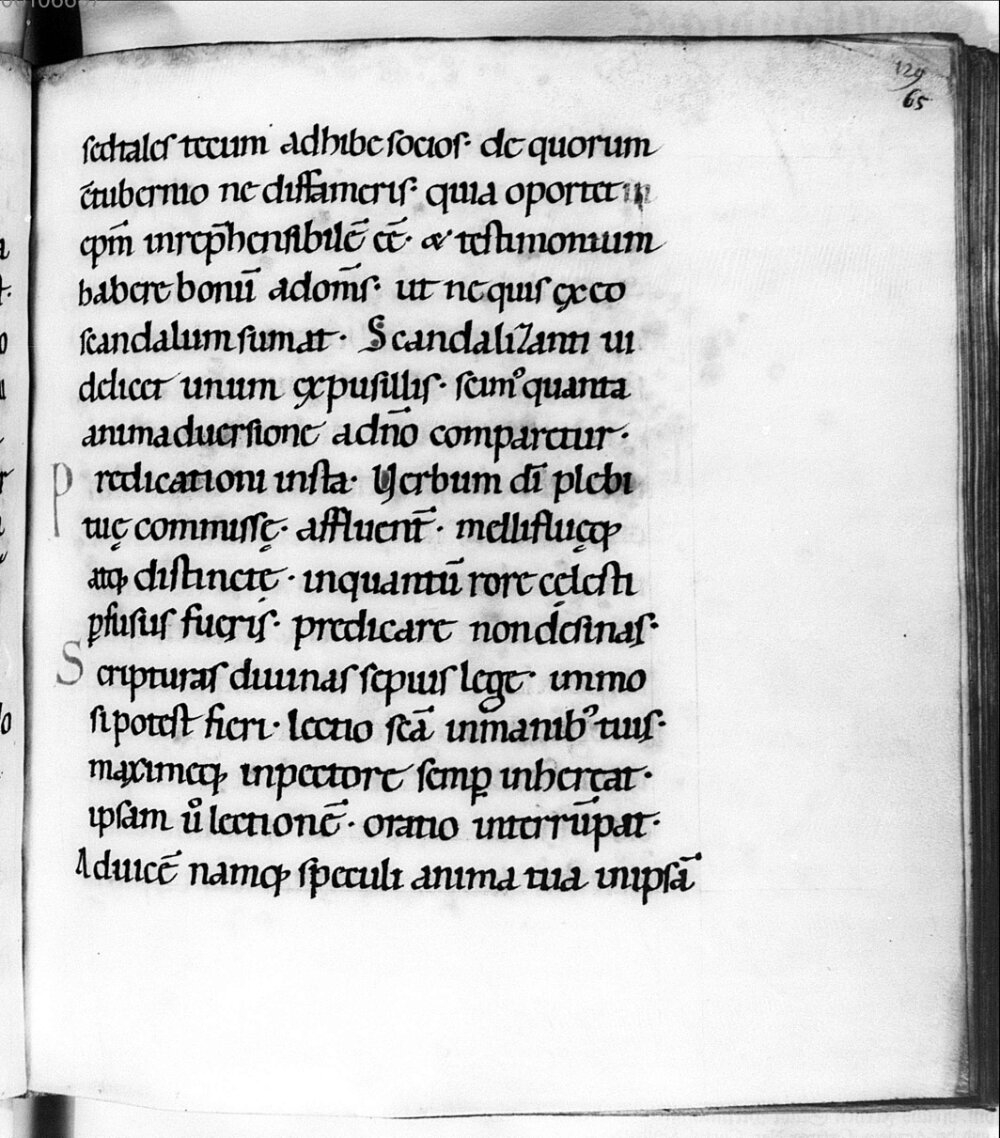 129
65
sedtales tecum adhibe socios· de quorum
c̄tubernio ne diffameris· quia oportet in
ep̄m inrep̄hensibilē eē· & testimonium
habere bonū adom̄s· ut nequis ęx eo
scandalum sumat· Scandalizanti ui
delicet unum ęxpusillis· scim᾽ quanta
animaduersione adn̄o comparetur·
Predicationi insta· Verbum dī plebi
tuę commissę· affluent̄· mellifluęq;
atq; distincte· inquantū rore cęlesti
ꝑfusus fuęris· predicare non desinas·
Scripturas diuinas sepius lege· immo
si potest fieri· lectio scā inmanib᾽ tuis·
maximeq; inpectore semꝑ inhereat·
ipsam ů lectionē· oratio interrūpat·
Aduicē namq; speculi anima tua inipsā